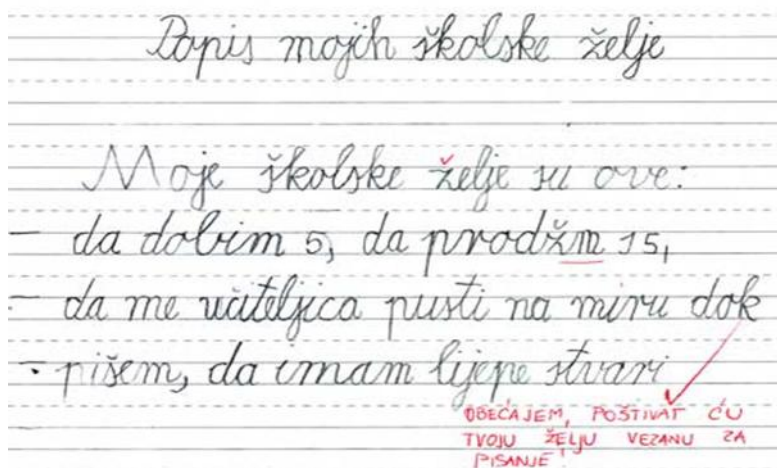 Popis mojih školske želje
Moje školske želje su ove:
- da dobim 5, da prodžm 15,
- da me učiteljica pusti na miru dok
- pišem, da imam lijepe stvari
OBEĆAJEM, POŠTIVAT ĆU
TVOJU ŽELJU VEZANU ZA
PISANJE!